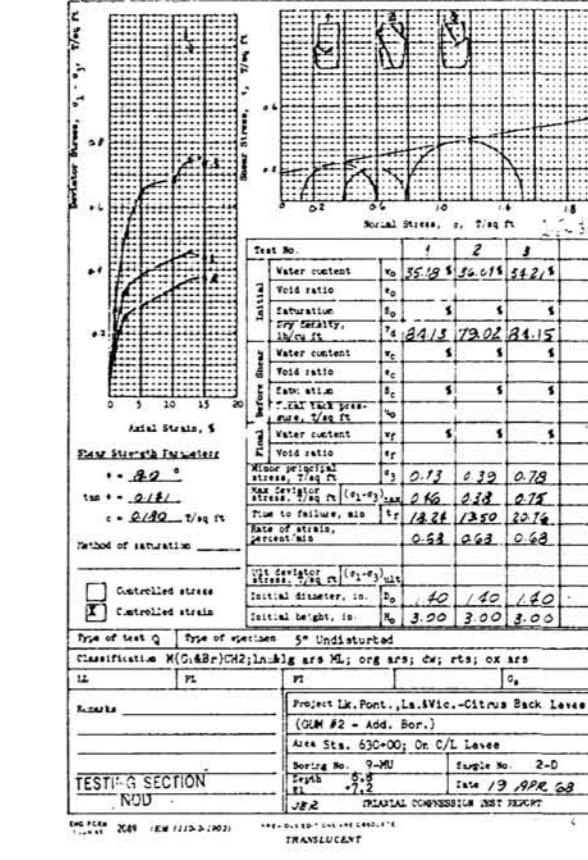 Deviator Stress, σ1 - σ3, T/sq ft
Shear Stress, τ, T/sq ft
1 2 3
0 0.2 0.6 1.0 1.4 1.8
Normal Stress, σ, T/sq ft
0 5 10 15 20
Axial Strain, %
Shear Strength Parameters
φ = 8.0 °
tan φ = 0.141
c = 0.180 T/sq ft
Method of saturation
Controlled stress
X Controlled strain
Test No. 1 2 3
Initial
Water content w0 35.18 % 36.01 % 34.21 %
Void ratio e0
Saturation S0 % % %
Dry density, lb/cu ft γd 84.13 79.02 84.15
Before Shear
Water content wc % % %
Void ratio ec
Saturation Sc % % %
Final back pressure, T/sq ft u0
Final
Water content wf % % %
Void ratio ef
Minor principal stress, T/sq ft σ3 0.13 0.39 0.78
Max deviator stress, T/sq ft (σ1-σ3)max 0.46 0.38 0.75
Time to failure, min tf 18.24 13.50 20.76
Rate of strain, percent/min 0.68 0.68 0.68
Ult deviator stress, T/sq ft (σ1-σ3)ult
Initial diameter, in. D0 1.40 1.40 1.40
Initial height, in. H0 3.00 3.00 3.00
Type of test Q Type of specimen 5" Undisturbed
Classification M(Gr&Br)CH2;lns&lg ars ML; org ars; dw; rts; ox ars
LL PL PI Gs
Remarks
Project Lk.Pont.,La.&Vic.-Citrus Back Levee
(GDM #2 - Add. Bor.)
Area Sta. 630+00; On C/L Levee
Boring No. 9-MU Sample No. 2-D
Depth 6.8
El -7.2 Date 19 APR 68
TESTING SECTION
NOD
JER TRIAXIAL COMPRESSION TEST REPORT
ENG FORM 2089 (EM 1110-2-1902) PREVIOUS EDITIONS ARE OBSOLETE
TRANSLUCENT